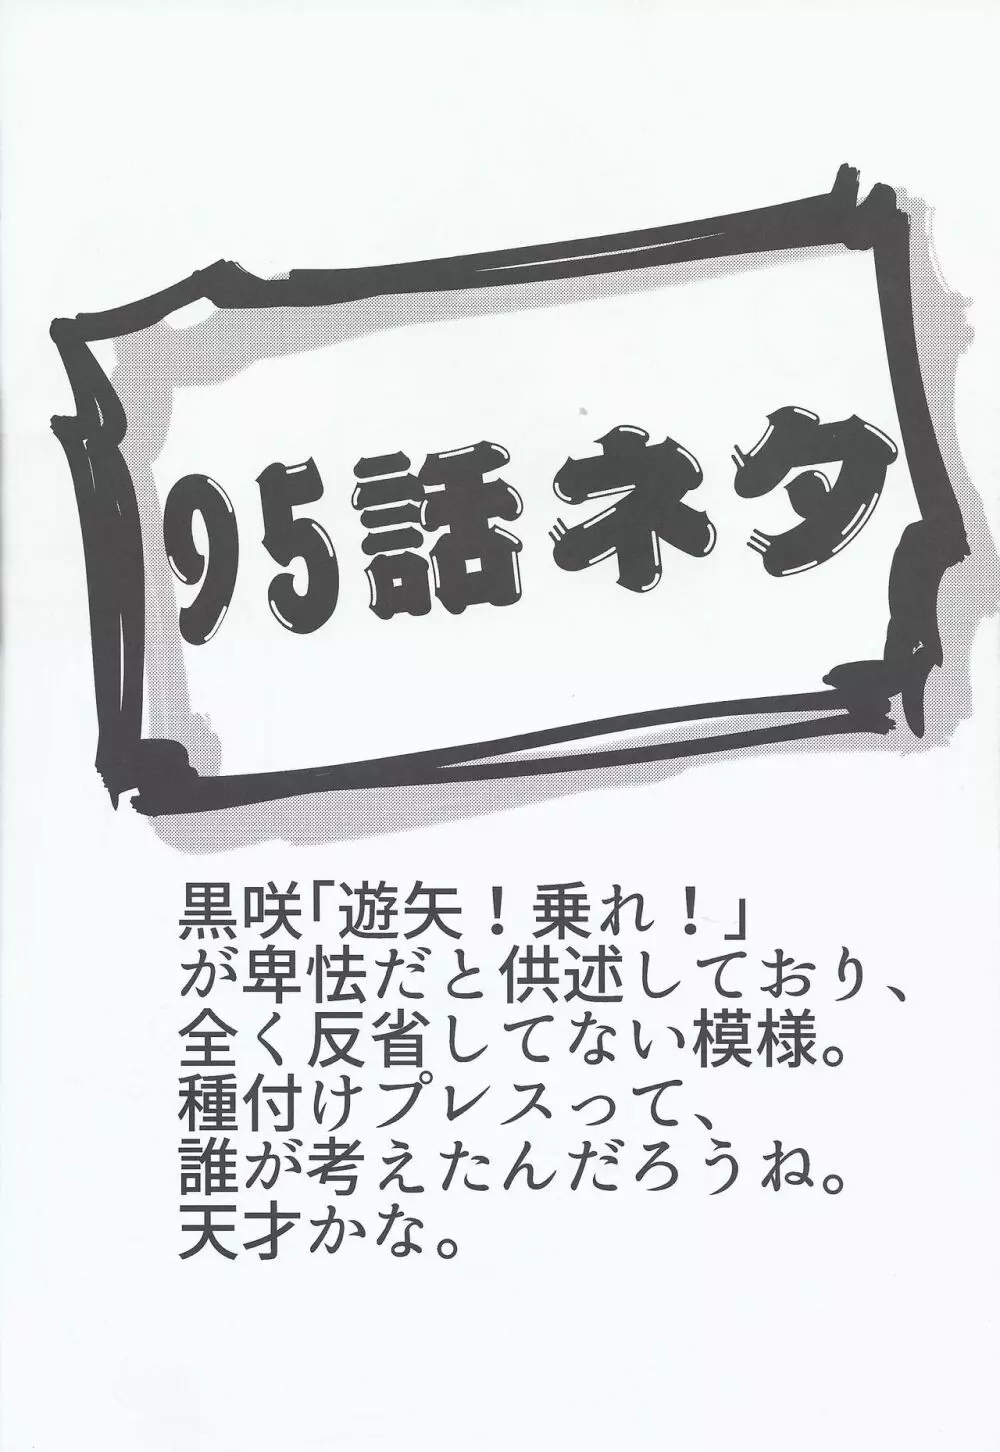 95話ネタ
黒咲「遊矢！乗れ！」
が卑怯だと供述しており、
全く反省してない模様。
種付けプレスって、
誰が考えたんだろうね。
天才かな。